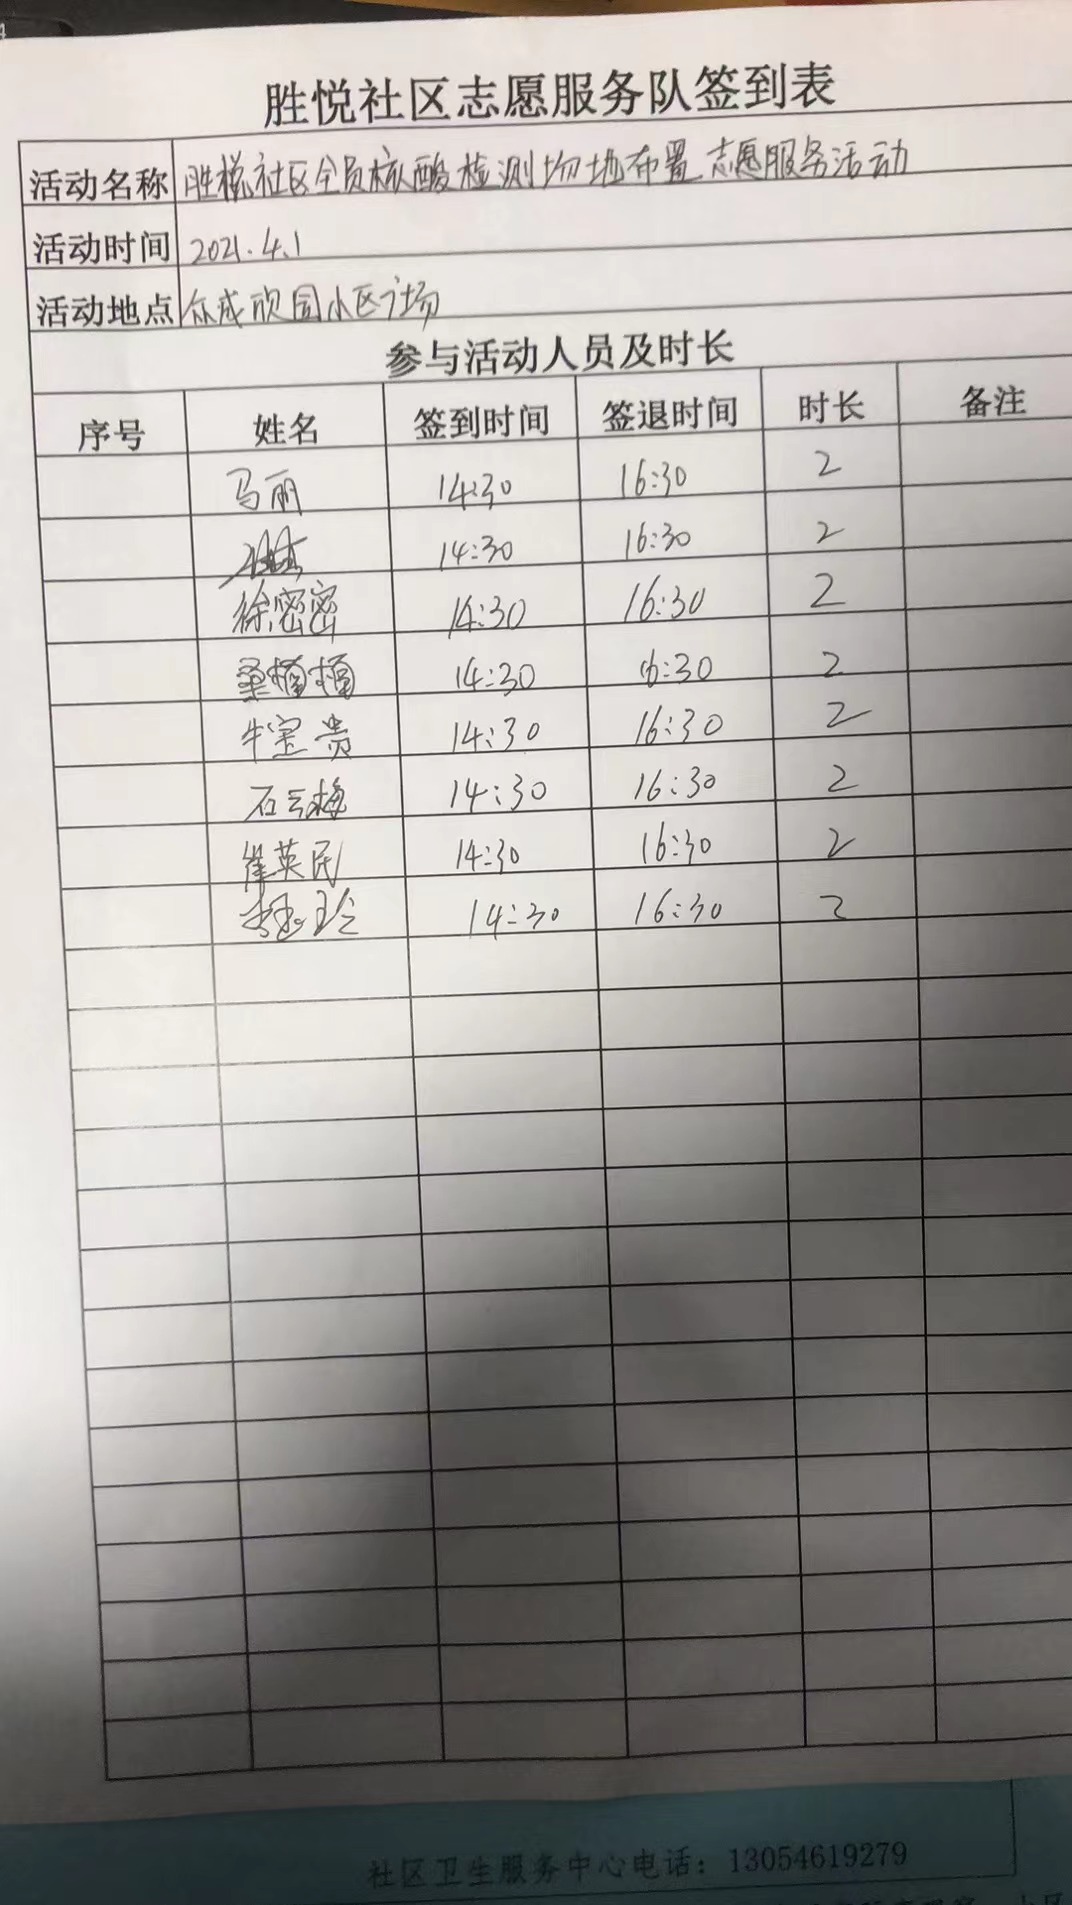 胜悦社区志愿服务队签到表
活动名称 胜悦社区全员核酸检测场地布置志愿服务活动
活动时间 2021.4.1
活动地点 众成颐园小区广场
参与活动人员及时长
序号 姓名 签到时间 签退时间 时长 备注
马丽 14:30 16:30 2
14:30 16:30 2
徐密密 14:30 16:30 2
14:30 16:30 2
牛宝贵 14:30 16:30 2
石云梅 14:30 16:30 2
崔英民 14:30 16:30 2
14:30 16:30 2
社区卫生服务中心电话：13054619279